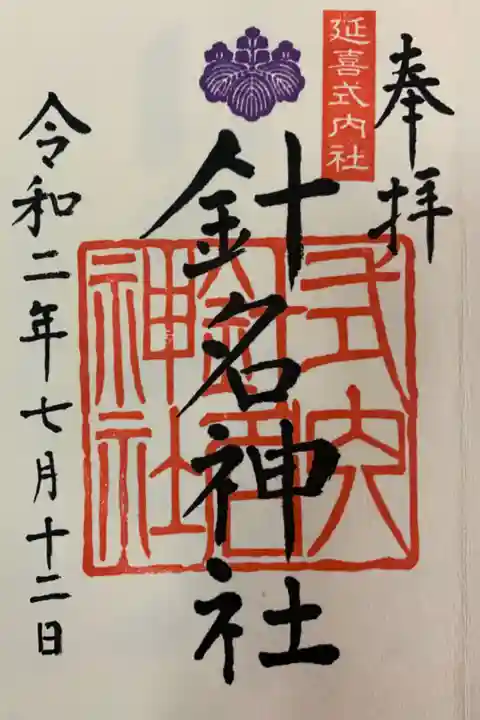 奉拝
延喜式内社
針名神社
式内
針名
神社
令和二年七月十二日